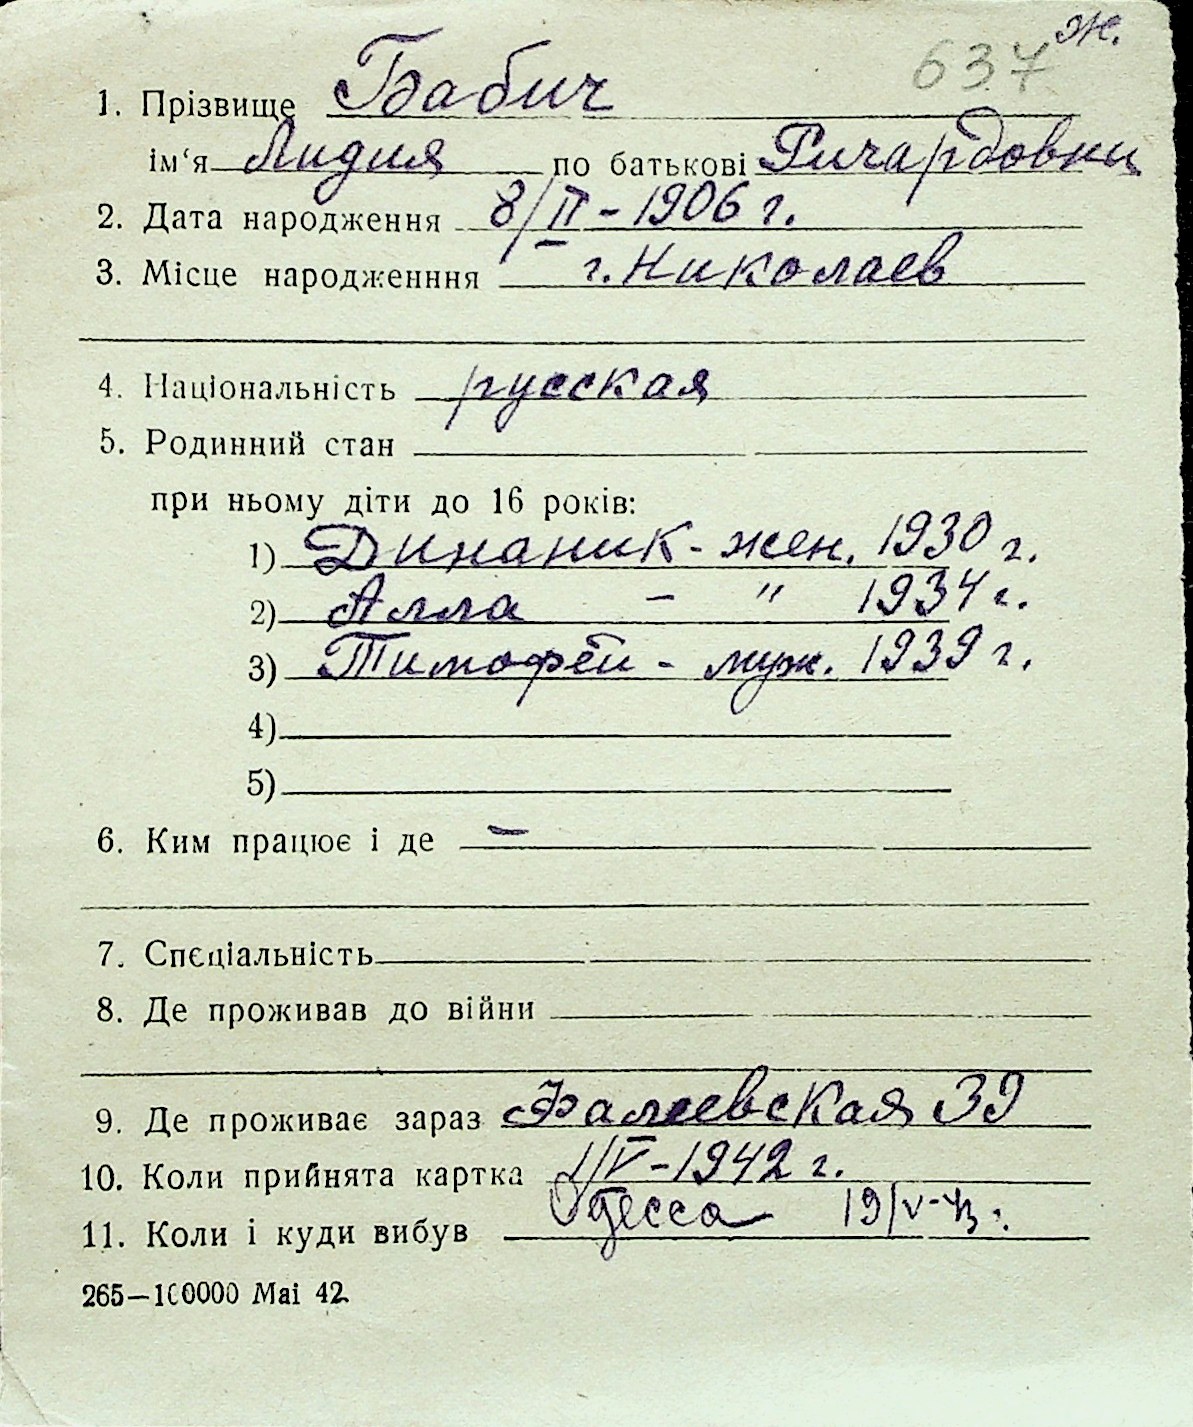 ж.
637
1. Прізвище Бабич
ім‘я Лидия по батькові Ричардовна
2. Дата народження 8/II - 1906 г.
3. Місце народженння г. Николаев
4. Національність русская
5. Родинний стан
при ньому діти до 16 років:
1) Динаник - жен. 1930 г.
2) Алла - " 1934 г.
3) Тимофей - муж. 1939 г.
4)
5)
6. Ким працює і де —
7. Спєціальність
8. Де проживав до війни
9. Де проживає зараз Фалеевская 39
10. Коли прийнята картка 1/V - 1942 г.
11. Коли і куди вибув Одесса 19/V-43 г.
265—100000 Маі 42